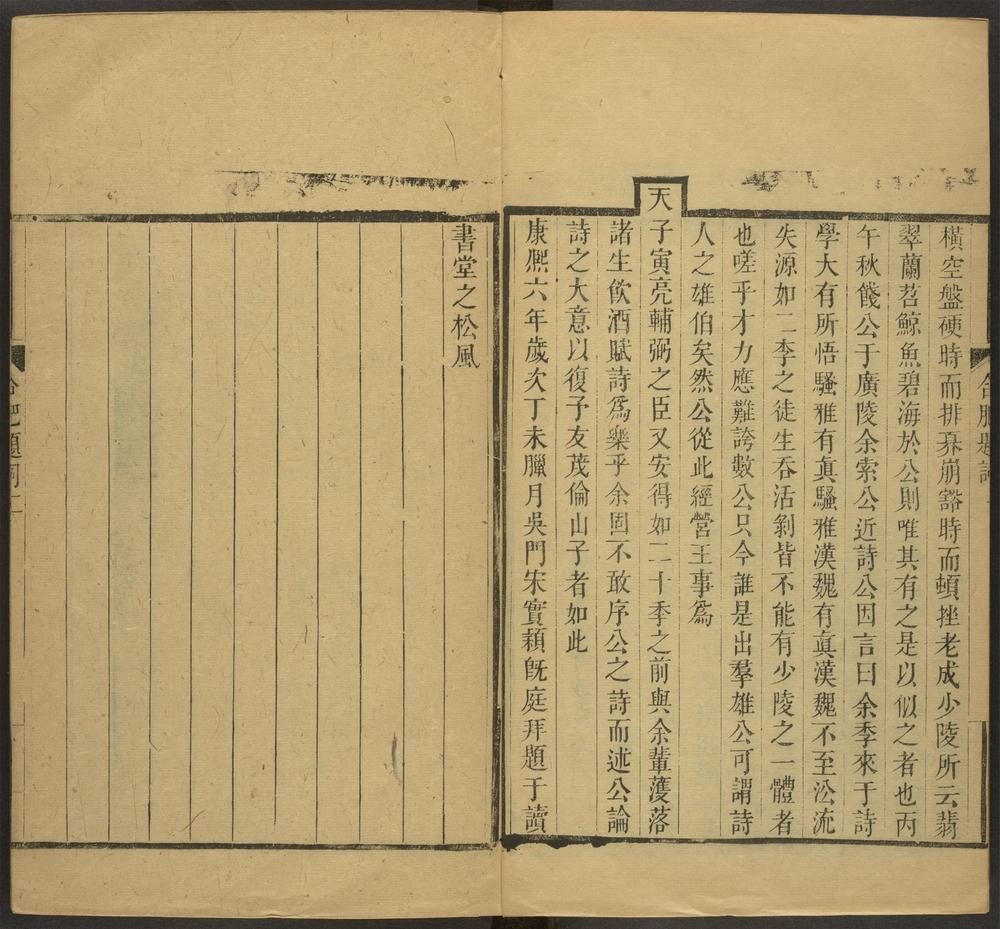 橫空盤硬時而排奡崩豁時而頓挫老成少陵所云翡
翠蘭苕鯨魚碧海於公則唯其有之是以似之者也丙
午秋餞公于廣陵余索公近詩公因言曰余季來于詩
學大有所悟騷雅有眞騷雅漢魏有眞漢魏不至㳂流
失源如二李之徒生吞活剝皆不能有少陵之一體者
也嗟乎才力應難誇數公只今誰是出羣雄公可謂詩
人之雄伯矣然公從此經營王事爲
天子寅亮輔弼之臣又安得如二十季之前與余輩濩落
諸生飲酒賦詩爲樂乎余固不敢序公之詩而述公論
詩之大意以復予友茂倫山子者如此
康熈六年歲次丁未臘月吳門宋實穎旣庭拜題于讀
書堂之松風
合肥題詞
合肥題詞二